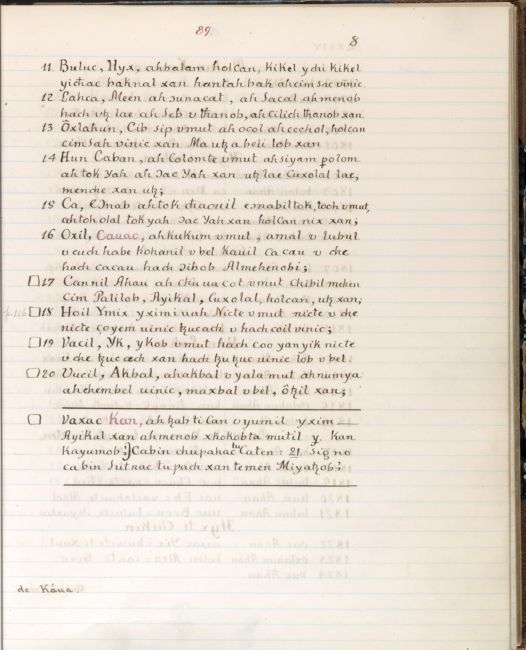 89.
8
11 Buluc, Hyx, ahbalam holcan, kikel y chi kikel
yichac baknal xan hantah bak ahcimsac vinic
12 Lahca, Meen ah
hach utz lae ah Seb u thanob, ah cilich thanob xan
13 Ôxlahun, Cib sip u mut ah ocol ah ceehol, holcan
cimsah vinic xan Ma utz a beli lob xan
14 Hun Caban, ah Colomte u mut ah siyam polom
ah tok yah ah Yah xan utz lae Cuxolal lae,
menche xan utz;
15 Ca, ah tok tooh u mut,
ah toh olal tok yah Yah xan holcan nix xan;
16 Oxil, Cauac, ah kukum u mut; amal u lubul
u cuch habe Kohanil u bel Kauil Ca cau u che
hach cacau hach Almehenobi;
17 Cannil Ahau ah chuuacot u mut Chibil
cim Palilob, Ayikal, Cuxolal, holcan, utz xan;
18 Hoil Ymix y ximiuah Nicte u mut nicte u che
nicte coyem uinic tzucach u hach coil vinic;
19 Vacil, YK, y Kob u mut hach coo yanyik nicte
u che tzucach xan hach tzutzuc uinic lob u bel.
20 Vucil, Akbal, ahakbal u yala mut ahnumya
ahchembel uinic, maxbal u bel, ôtzil xan;
Vaxac Kan, ah tzab ti Can u yumil y xim
Ayikal xan ahmenob xkokobta mutil y Kan
Kayumob; Cabin chupahac tu Caten: 21 signo
cabin Sutnac tu pach xan temen Miyatzob;
de Káua.